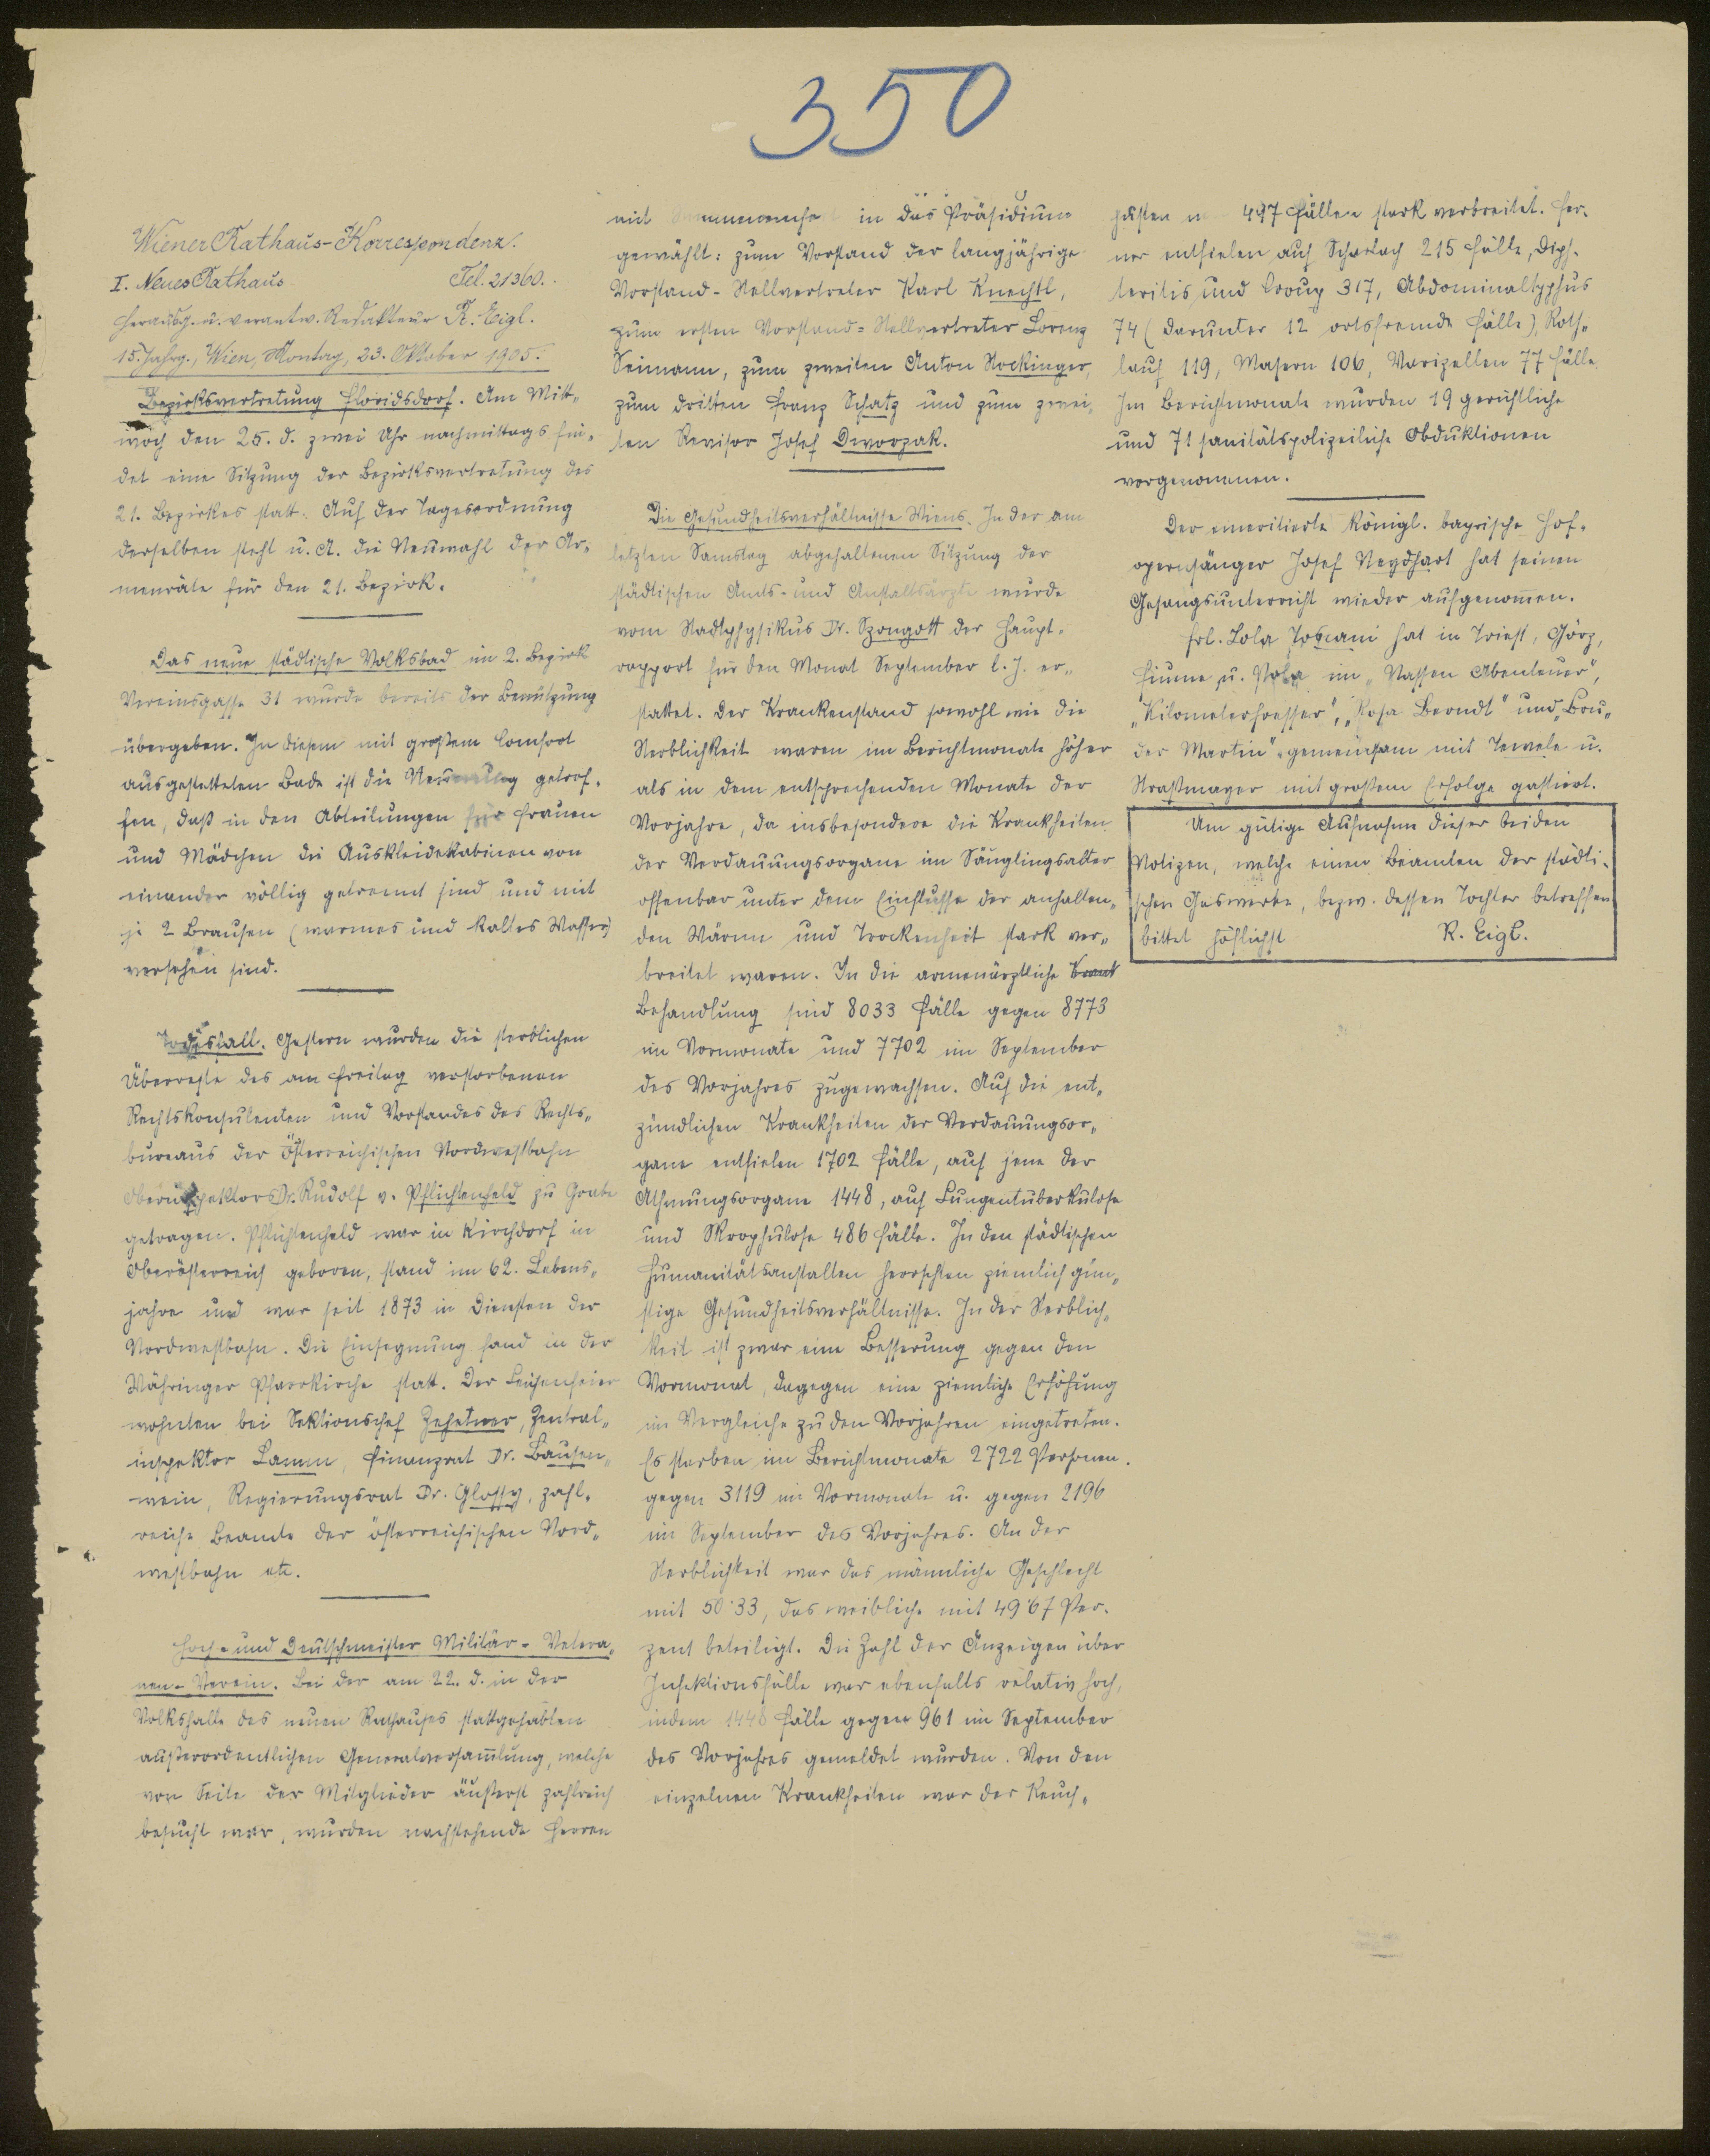 350
Wiener Rathaus-Korrespondenz.
I. Neues Rathaus Tel. 21360.
Herausg. u. verantw. Redakteur R. Eigl.
15. Jahrg., Wien, Montag, 23. Oktober 1905.
Bezirksvertretung Floridsdorf. Am Mitt-
woch den 25. d. zwei Uhr nachmittags fin-
det eine Sitzung der Bezirksvertretung des
21. Bezirkes statt. Auf der Tagesordnung
derselben steht u. A. die Neuwahl der Ar-
menräte für den 21. Bezirk.
Das neue städtische Volksbad im 2. Bezirk
Vereinsgasse 31 wurde bereits der Benützung
übergeben. In diesem mit großem Comfort
ausgestatteten Bade ist die Neuerung getrof-
fen, daß in den Abteilungen für Frauen
und Mädchen die Auskleidekabinen von
einander völlig getrennt sind und mit
je 2 Brausen (warmes und kaltes Wasser)
versehen sind.
Todesfall. Gestern wurden die sterblichen
Überreste des am Freitag verstorbenen
Rechtskonsulenten und Vorstandes des Rechts-
bureaus der Österreichischen Nordwestbahn
Oberinspektors Dr. Rudolf v. Pflichtenheld zu Grabe
getragen. Pflichtenheld war in Kirchdorf in
Oberösterreich geboren, stand im 62. Lebens-
jahre und war seit 1873 in Diensten der
Nordwestbahn. Die Einsegnung fand in der
Währinger Pfarrkirche statt. Der Leichenfeier
wohnten bei Sektionschef Zehetner, Zentral-
inspektor Lamm, Finanzrat Dr. Bausen-
wein, Regierungsrat Dr. Glossy, zahl-
reiche Beamte der österreichischen Nord-
westbahn etc.
Hoch- und Deutschmeister Militär-Vetera-
nen-Verein. Bei der am 22. d. in der
Volkshalle des neuen Rathauses stattgehabten
außerordentlichen Generalversam̅lung, welche
von Seite der Mitglieder äußerst zahlreich
besucht war, wurden nachstehende Herren
mit in das Präsidium
gewählt: zum Vorstand der langjährige
Vorstand-Stellvertreter Karl Knechtl,
zum ersten Vorstand-Stellvertreter Lorenz
Seimann, zum zweiten Anton Stockinger,
zum dritten Franz Schatz und zum zwei-
ten Revisor Josef Dworzak.
Die Gesundheitsverhältnisse Wiens. In der am
letzten Samstag abgehaltenen Sitzung der
städtischen Amts- und Anstaltsärzte wurde
vom Stadtphysikus Dr. Szongott der Haupt-
rapport für den Monat September l. J. er-
stattet. Der Krankenstand sowohl wie die
Sterblichkeit waren im Berichtmonate höher
als in dem entsprechenden Monate der
Vorjahre, da insbesondere die Krankheiten
der Verdauungsorgane im Säuglingsalter
offenbar unter dem Einflusse der anhalten-
den Wärme und Trockenheit stark ver-
breitet waren. In die armenärztliche Krank
Behandlung sind 8033 Fälle gegen 8773
im Vormonate und 7702 im September
des Vorjahres zugewachsen. Auf die ent-
zündlichen Krankheiten der Verdauungsor-
gane entfielen 1702 Fälle, auf jene der
Athmungsorgane 1448, auf Lungentuberkulose
und Skrophulose 486 Fälle. In den städtischen
Humanitätsanstalten herrschten ziemlich gün-
stige Gesundheitsverhältnisse. In der Sterblich-
keit ist zwar eine Besserung gegen den
Vormonat, dagegen eine ziemliche Erhöhung
im Vergleiche zu den Vorjahren eingetreten.
Es starben im Berichtmonate 2722 Personen.
gegen 3119 im Vormonate u. gegen 2196
im September des Vorjahres. An der
Sterblichkeit war das männliche Geschlecht
mit 50·33, das weibliche mit 49·67 Per-
zent beteiligt. Die Zahl der Anzeigen über
Infektionsfälle war ebenfalls relativ hoch,
indem 1448 Fälle gegen 961 im September
des Vorjahres gemeldet wurden. Von den
einzelnen Krankheiten war der Keuch-
husten 497 Fällen stark verbreitet. Fer-
ner entfielen auf Scharlach 215 Fälle, Diph-
teritis und Croup 317, Abdominaltyphus
74 (darunter 12 ortsfremde Fälle), Roth-
lauf 119, Masern 106, Varizellen 77 Fälle.
Im Berichtmonate wurden 19 gerichtliche
und 71 sanitätspolizeiliche Obduktionen
vorgenommen.
Der emeritierte königl. bayrische Hof-
opernsänger Josef Neydhart hat seinen
Gesangsunterricht wieder aufgenom̅en.
Frl. Lola Toscani hat in Triest, Görz,
Fiume u. Pola im „Nassen Abenteuer",
„Kilometerfresser", „Rosa Berndt" und „Bru-
der Martin" gemeinsam mit Tewele u.
Straßmayer mit großem Erfolge gastiert.
Um gütige Aufnahme dieser beiden
Notizen, welche einen Beamten der städti-
schen Gaswerke, bezw. dessen Tochter betreffen
bittet höflichst R. Eigl.